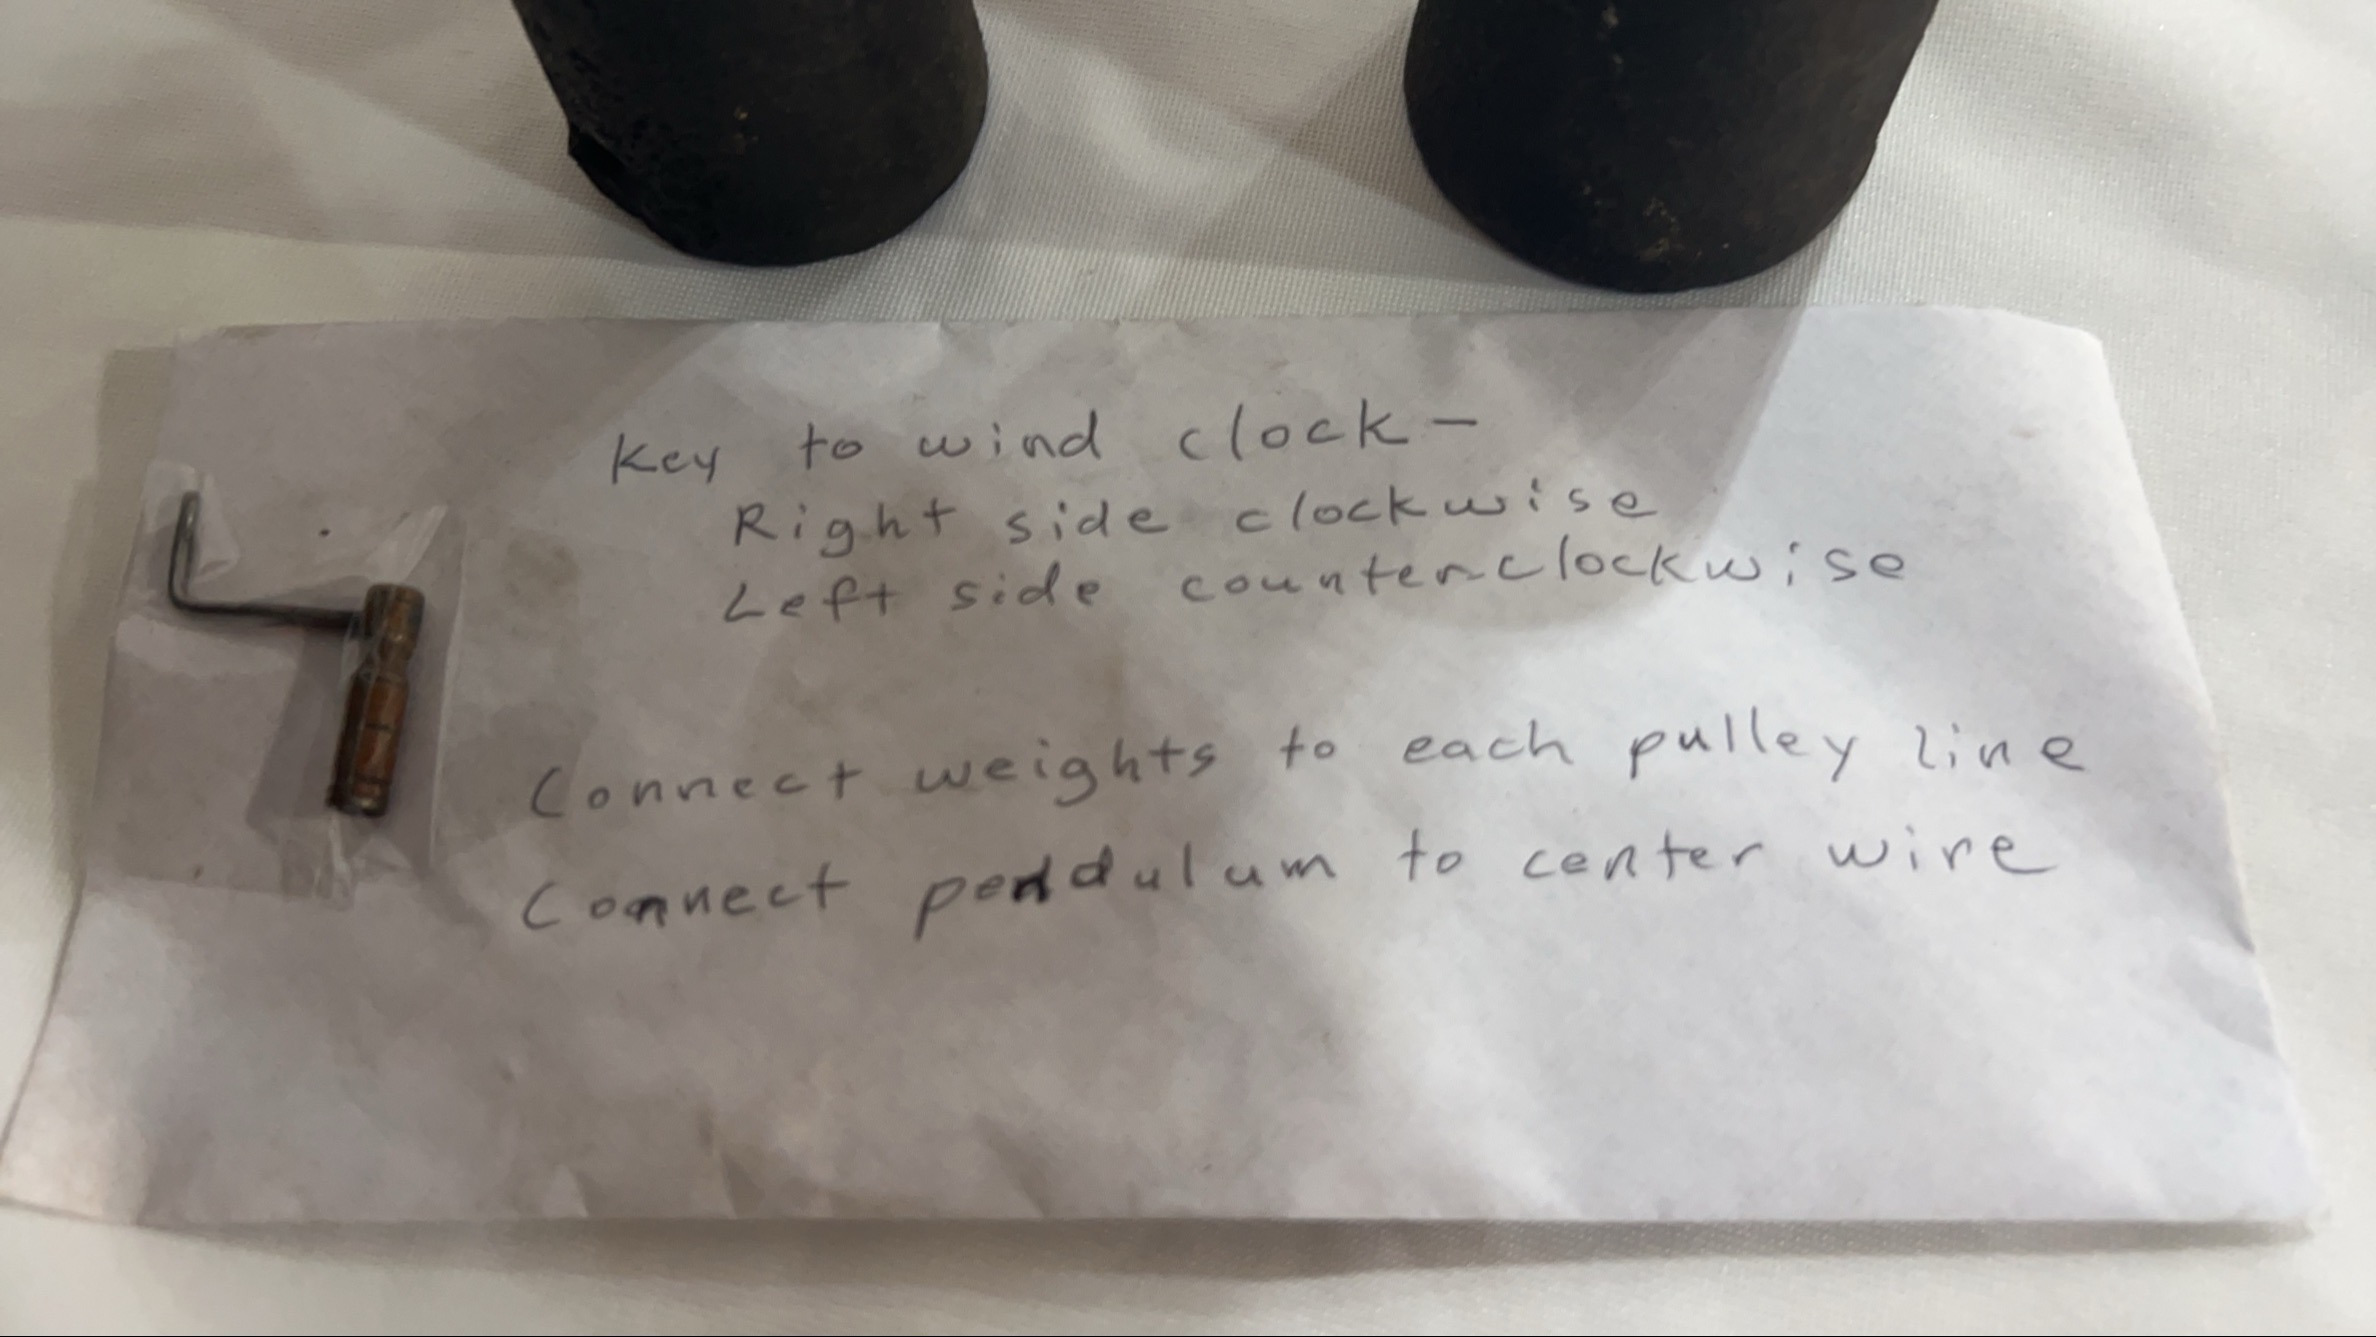 Key to wind clock -
Right side clockwise
Left side counterclockwise
Connect weights to each pulley line
Connect pendulum to center wire